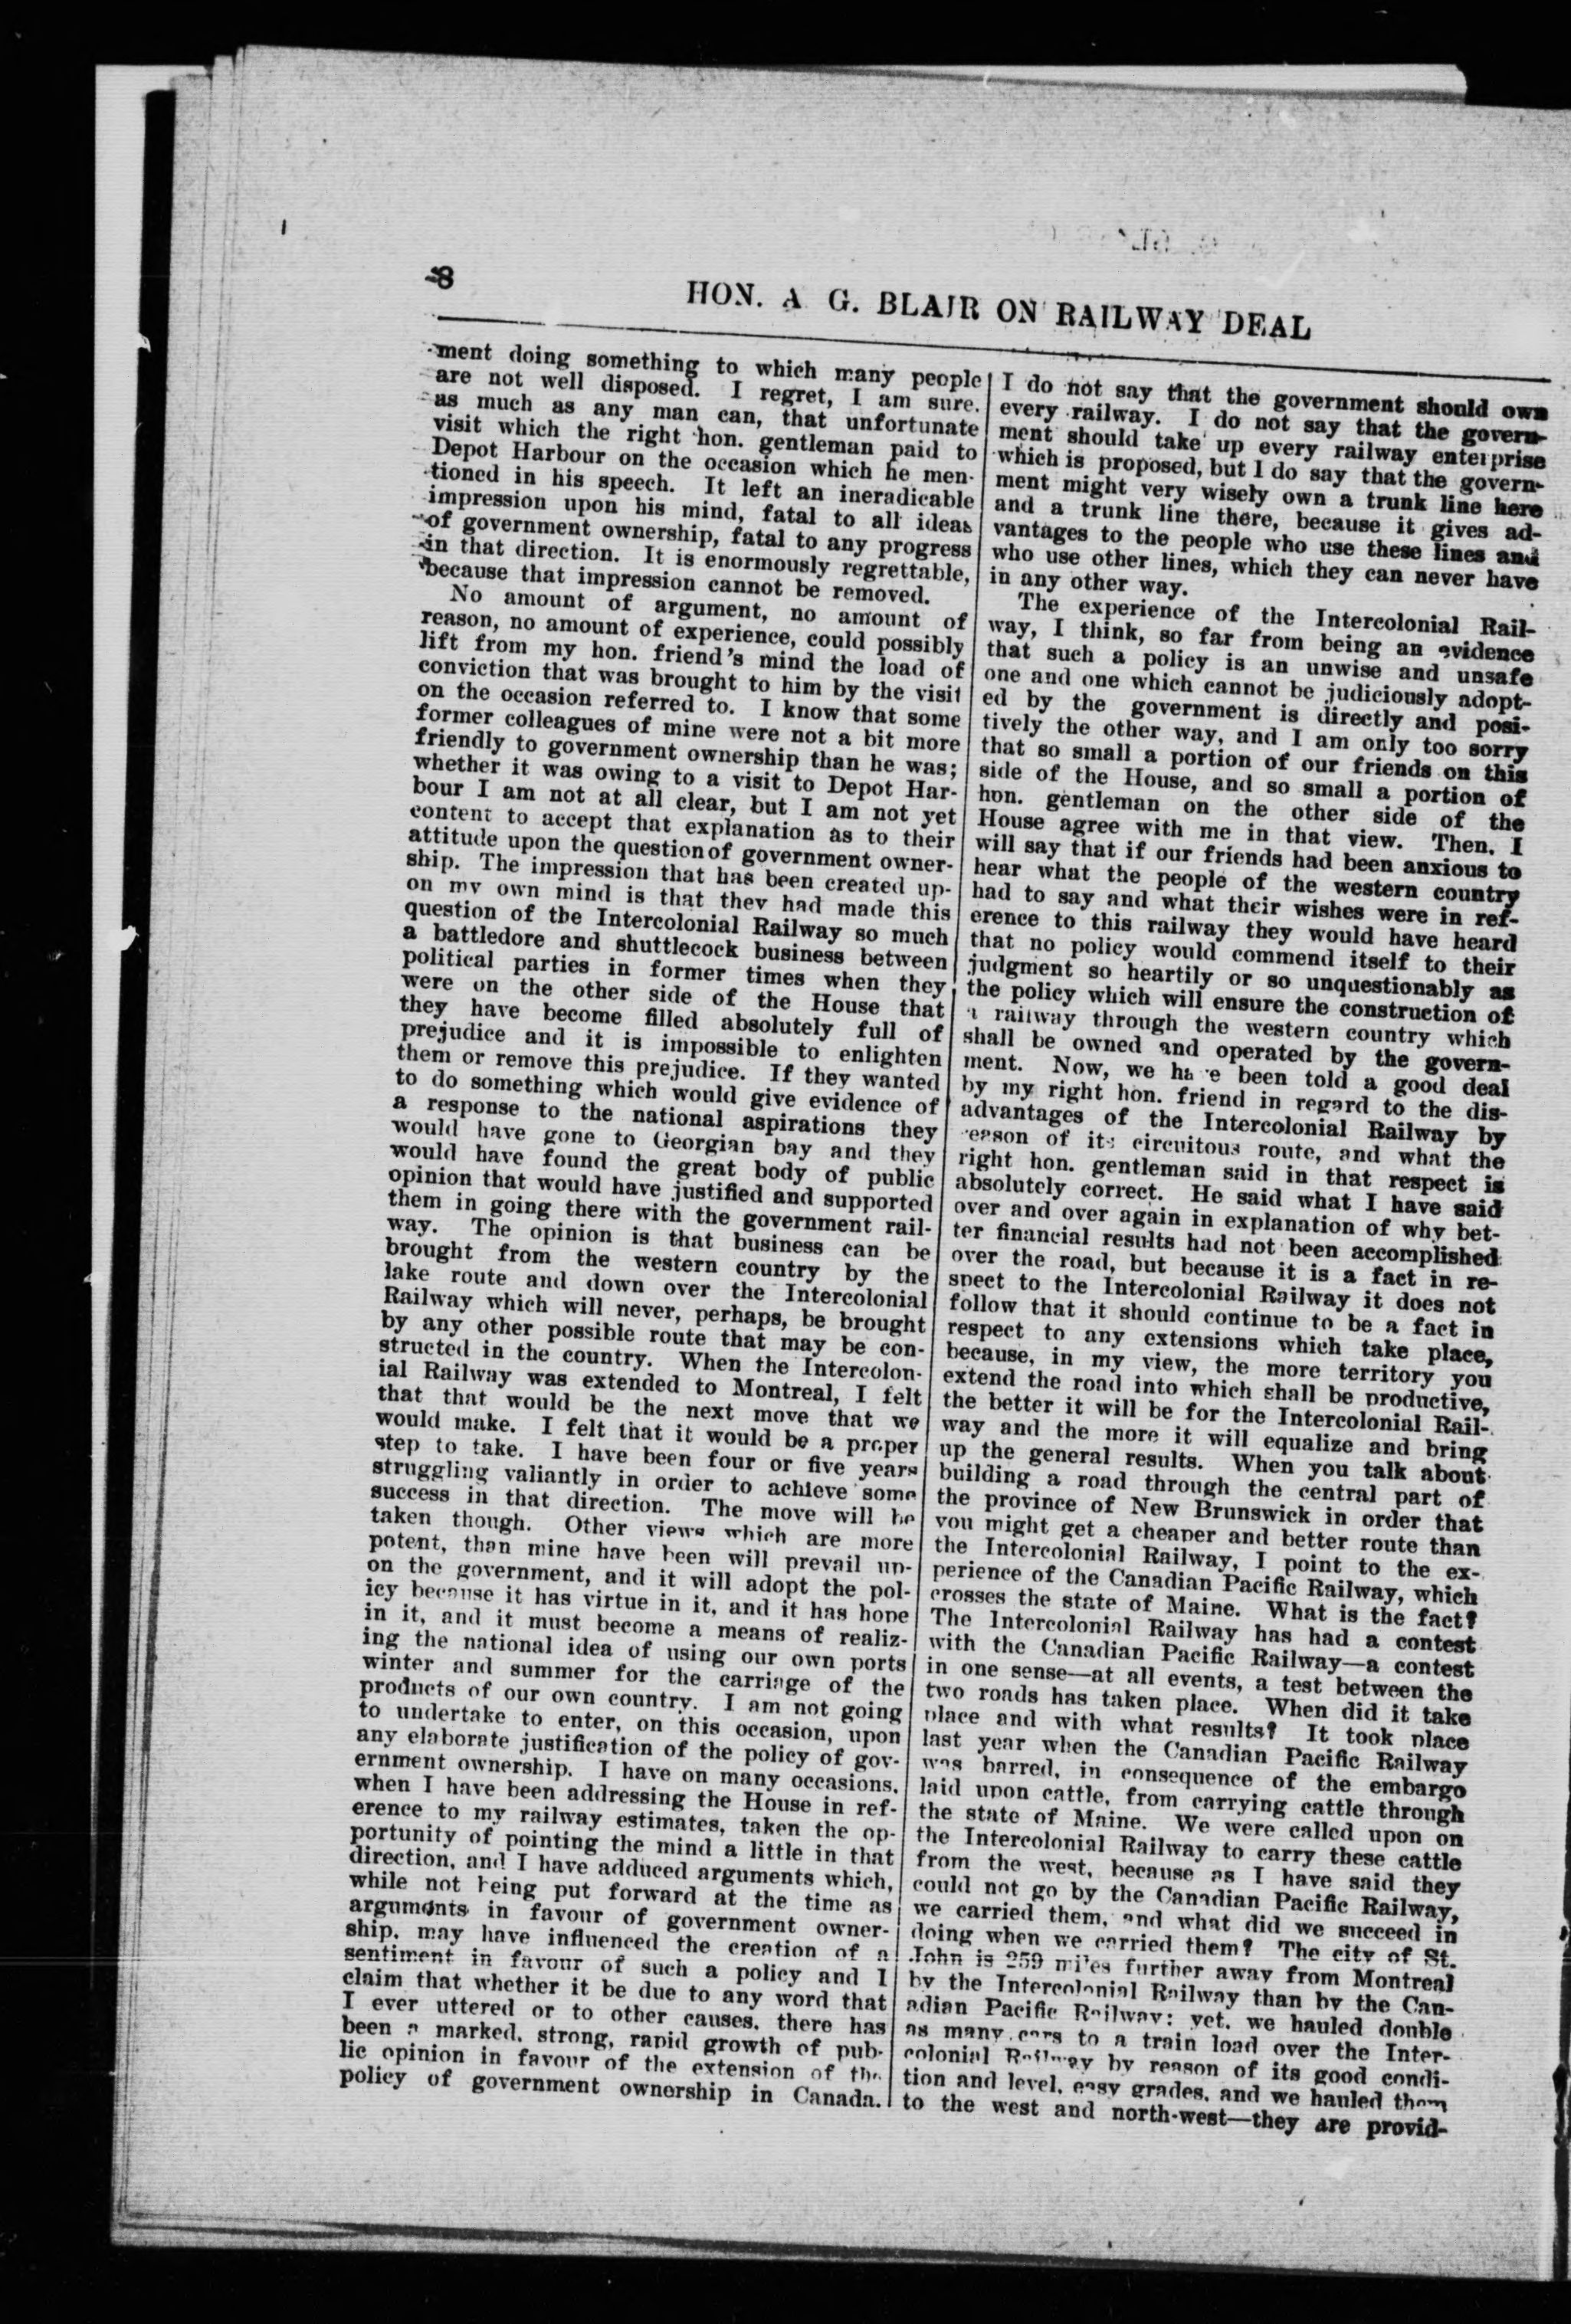 8
HON. A G. BLAIR ON RAILWAY DEAL
ment doing something to which many people
are not well disposed. I regret, I am sure,
as much as any man can, that unfortunate
visit which the right hon. gentleman paid to
Depot Harbour on the occasion which he men-
tioned in his speech. It left an ineradicable
impression upon his mind, fatal to all ideas
of government ownership, fatal to any progress
in that direction. It is enormously regrettable,
because that impression cannot be removed.
No amount of argument, no amount of
reason, no amount of experience, could possibly
lift from my hon. friend's mind the load of
conviction that was brought to him by the visit
on the occasion referred to. I know that some
former colleagues of mine were not a bit more
friendly to government ownership than he was;
whether it was owing to a visit to Depot Har-
bour I am not at all clear, but I am not yet
content to accept that explanation as to their
attitude upon the question of government owner-
ship. The impression that has been created up-
on my own mind is that they had made this
question of the Intercolonial Railway so much
a battledore and shuttlecock business between
political parties in former times when they
were on the other side of the House that
they have become filled absolutely full of
prejudice and it is impossible to enlighten
them or remove this prejudice. If they wanted
to do something which would give evidence of
a response to the national aspirations they
would have gone to Georgian bay and they
would have found the great body of public
opinion that would have justified and supported
them in going there with the government rail-
way. The opinion is that business can be
brought from the western country by the
lake route and down over the Intercolonial
Railway which will never, perhaps, be brought
by any other possible route that may be con-
structed in the country. When the Intercolon-
ial Railway was extended to Montreal, I felt
that that would be the next move that we
would make. I felt that it would be a proper
step to take. I have been four or five years
struggling valiantly in order to achieve some
success in that direction. The move will be
taken though. Other views which are more
potent, than mine have been will prevail up-
on the government, and it will adopt the pol-
icy because it has virtue in it, and it has hope
in it, and it must become a means of realiz-
ing the national idea of using our own ports
winter and summer for the carriage of the
products of our own country. I am not going
to undertake to enter, on this occasion, upon
any elaborate justification of the policy of gov-
ernment ownership. I have on many occasions,
when I have been addressing the House in ref-
erence to my railway estimates, taken the op-
portunity of pointing the mind a little in that
direction, and I have adduced arguments which,
while not being put forward at the time as
arguments in favour of government owner-
ship, may have influenced the creation of a
sentiment in favour of such a policy and I
claim that whether it be due to any word that
I ever uttered or to other causes, there has
been a marked, strong, rapid growth of pub-
lic opinion in favour of the extension of the
policy of government ownership in Canada.
I do not say that the government should own
every railway. I do not say that the govern-
ment should take up every railway enterprise
which is proposed, but I do say that the govern-
ment might very wisely own a trunk line here
and a trunk line there, because it gives ad-
vantages to the people who use these lines and
who use other lines, which they can never have
in any other way.
The experience of the Intercolonial Rail-
way, I think, so far from being an evidence
that such a policy is an unwise and unsafe
one and one which cannot be judiciously adopt-
ed by the government is directly and posi-
tively the other way, and I am only too sorry
that so small a portion of our friends on this
side of the House, and so small a portion of
hon. gentleman on the other side of the
House agree with me in that view. Then, I
will say that if our friends had been anxious to
hear what the people of the western country
had to say and what their wishes were in ref-
erence to this railway they would have heard
that no policy would commend itself to their
judgment so heartily or so unquestionably as
the policy which will ensure the construction of
a railway through the western country which
shall be owned and operated by the govern-
ment. Now, we have been told a good deal
by my right hon. friend in regard to the dis-
advantages of the Intercolonial Railway by
reason of its circuitous route, and what the
right hon. gentleman said in that respect is
absolutely correct. He said what I have said
over and over again in explanation of why bet-
ter financial results had not been accomplished
over the road, but because it is a fact in re-
spect to the Intercolonial Railway it does not
follow that it should continue to be a fact in
respect to any extensions which take place,
because, in my view, the more territory you
extend the road into which shall be productive,
the better it will be for the Intercolonial Rail-
way and the more it will equalize and bring
up the general results. When you talk about
building a road through the central part of
the province of New Brunswick in order that
you might get a cheaper and better route than
the Intercolonial Railway, I point to the ex-
perience of the Canadian Pacific Railway, which
crosses the state of Maine. What is the fact?
The Intercolonial Railway has had a contest
with the Canadian Pacific Railway—a contest
in one sense—at all events, a test between the
two roads has taken place. When did it take
place and with what results? It took place
last year when the Canadian Pacific Railway
was barred, in consequence of the embargo
laid upon cattle, from carrying cattle through
the state of Maine. We were called upon on
the Intercolonial Railway to carry these cattle
from the west, because as I have said they
could not go by the Canadian Pacific Railway,
we carried them, and what did we succeed in
doing when we carried them? The city of St.
John is 259 miles further away from Montreal
by the Intercolonial Railway than by the Can-
adian Pacific Railway: yet, we hauled double
as many cars to a train load over the Inter-
colonial Railway by reason of its good condi-
tion and level, easy grades, and we hauled them
to the west and north-west—they are provid-